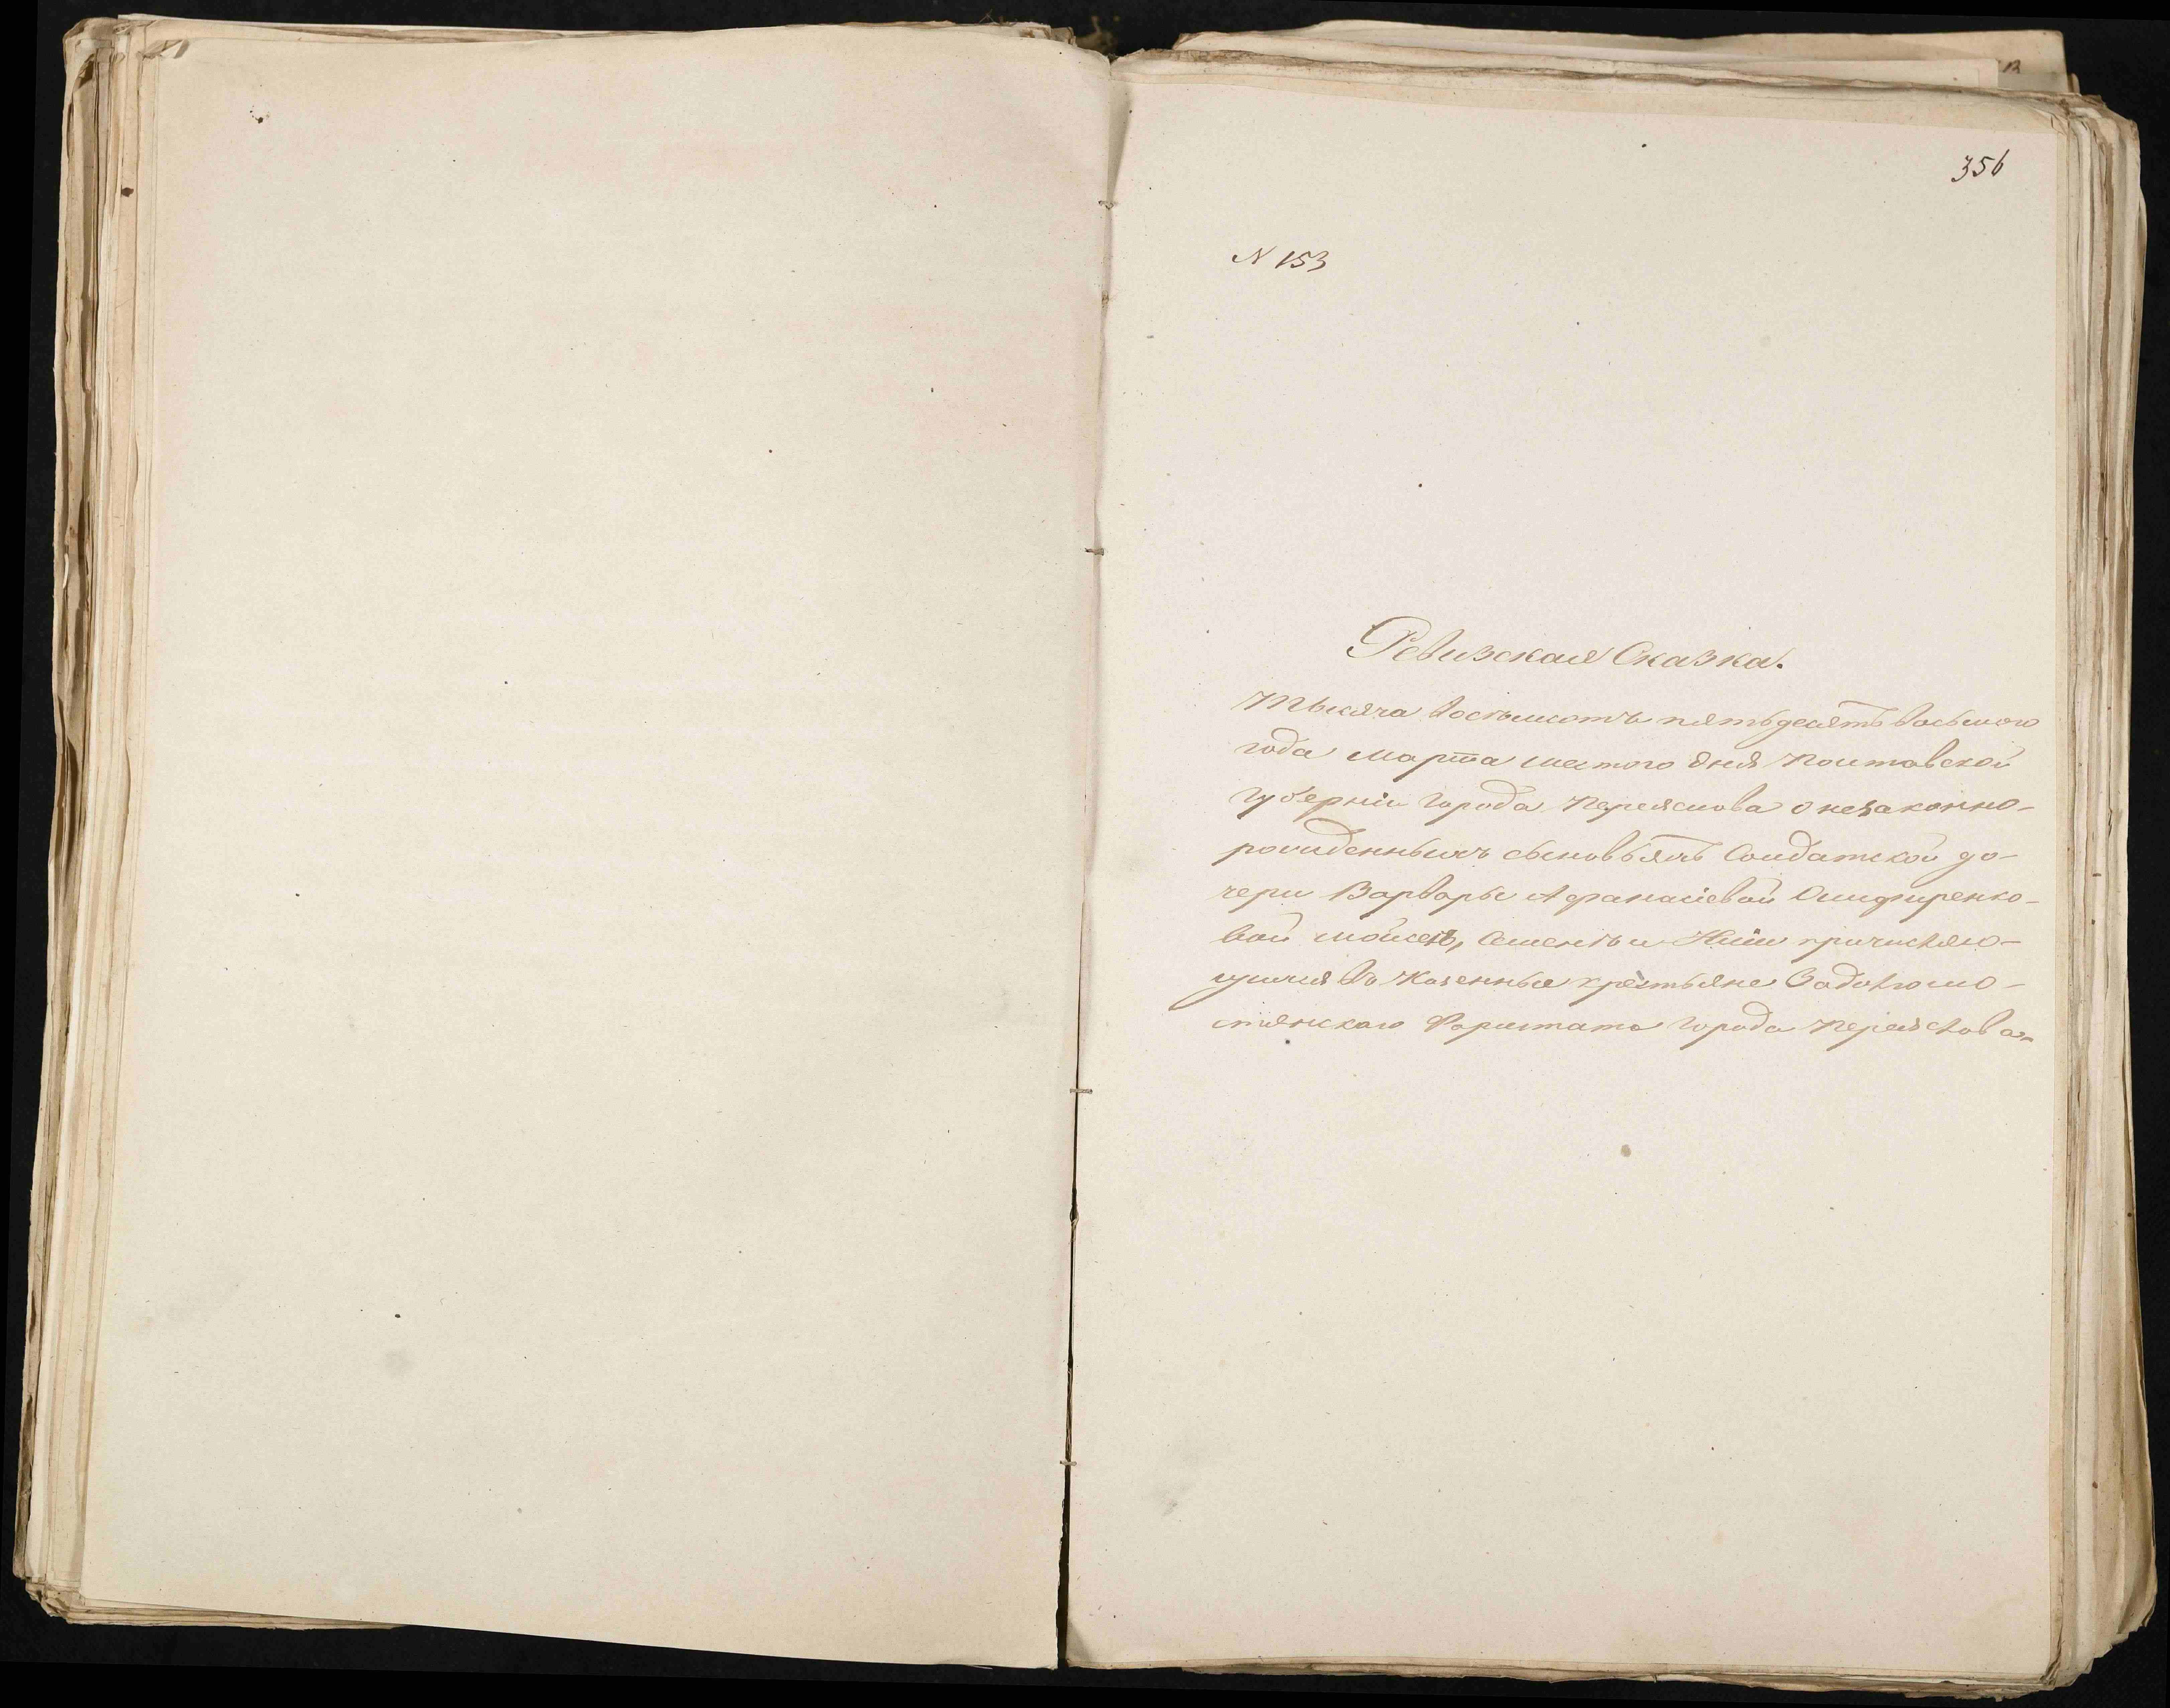 356
N 153
Ревизская Сказка.
Тысяча восѣмьсотъ пятьдесятъ восьмого
года марта шестого дня Полтавской
губерніи города Переяслова о незаконно-
рожденныхъ сыновьяхъ Солдатской до-
чери Варвары Афанасіевой
вой Мойсей, Семенъ и причисляю-
щихся въ Казенные крестьяне
Форштата города Переяслова.